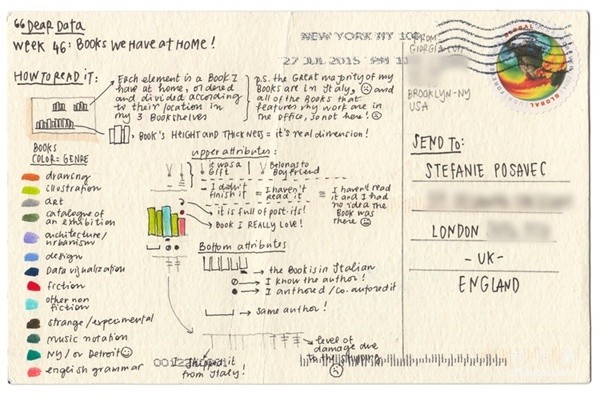 "Dear Data
Week 46: Books We Have at Home!
HOW TO READ IT:
Each element is a Book I
have at home, ordered
and divided according
to their location in
my 3 Bookshelves
P.S. the Great majority of my
Books are in Italy, and
all of the Books that
features my work are in
the office, so not here!
Book's Height and Thickness = it's real dimension!
Books
Color = Genre
drawing
illustration
art
catalogue of
an exhibition
architecture/
urbanism
design
Data visualization
fiction
other non
fiction
strange/experimental
music notation
NY/ or Detroit
english grammar
upper attributes:
it was a
Gift
Belongs to
Boyfriend
I didn't
finish it
I haven't
read it
I haven't read
it and I had
no idea the
Book was
there
it is full of post-its!
Book I Really Love!
Bottom attributes
the Book is in Italian
I know the author!
I authored / co-autored it
Same author!
I shipped it
from Italy!
level of
damage due
to the shipping
NEW YORK NY 100
27 JUL 2015 PM 11
FROM
BROOKLYN-NY
USA
GLOBAL
SEND TO:
STEFANIE POSAVEC
LONDON
- UK -
ENGLAND